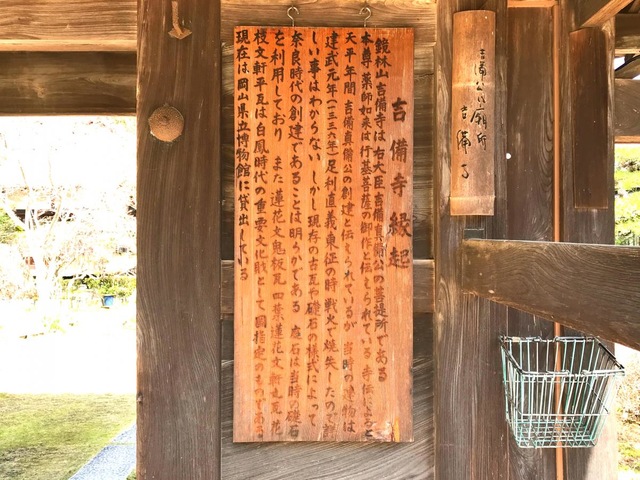 吉備公廟所
吉備寺
吉備寺縁起
鏡林山吉備寺は右大臣吉備真備公の菩提所である
本尊薬師如来は行基菩薩の御作と伝えられている 寺伝によると
天平年間 吉備真備公の創建と伝えられているが 当時の建物は
建武元年(一三三六年)足利直義東征の時 戦火で焼失したので詳
しい事はわからない しかし現存の古瓦や礎石の様式によって
奈良時代の創建であることは明らかである 庭石は当時の礎石
を利用しており また 蓮花文鬼板瓦 四葉蓮花文軒丸瓦 花
枝文軒平瓦は白鳳時代の重要文化財として国指定のものであるが
現在は岡山県立博物館に貸出している